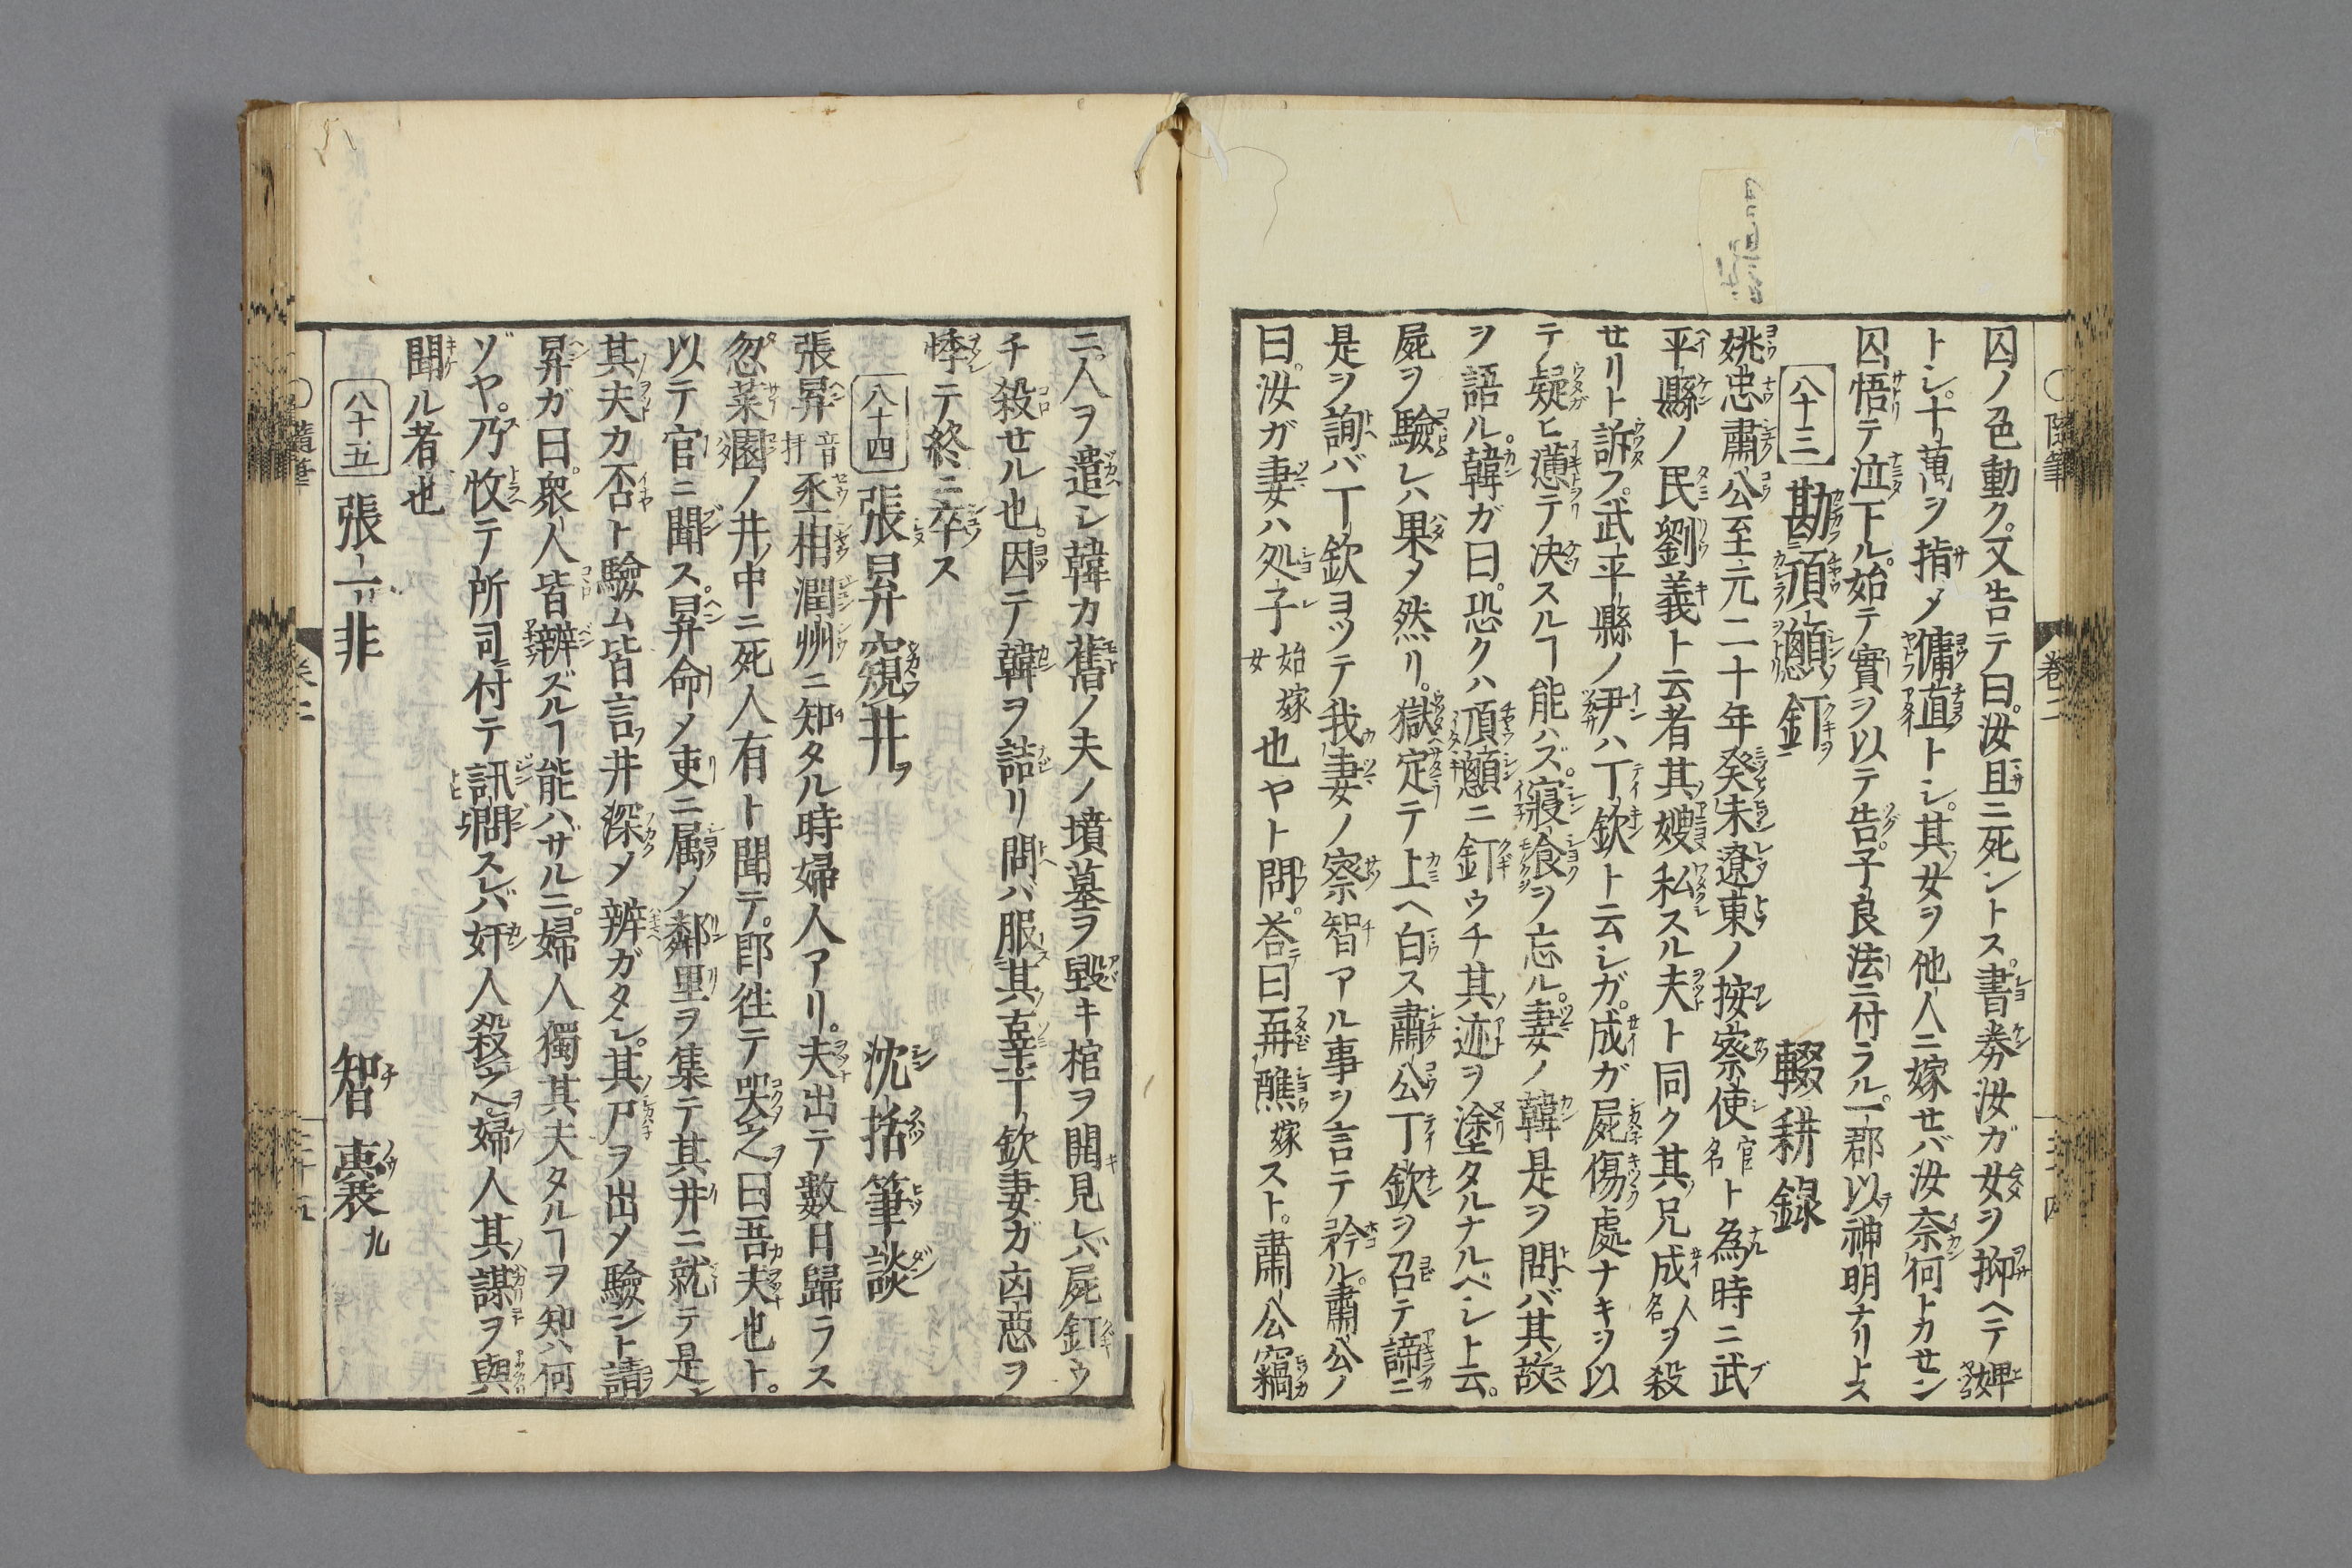 囚ノ色動ク又告テ曰。汝且ニ死ントス。書券汝ガ女ヲ抑ヘテ婢
トシ。十萬ヲ指メ傭直トシ。其女ヲ他人ニ嫁セバ汝奈何トカセン
囚悟テ泣下ル。始テ實ヲ以テ告。子良法ニ付ラル。一郡以神明ナリトス
八十三 勘頂顖釘 輟耕錄
姚忠肅公至元二十年癸未遼東ノ按察使官名ト為時ニ武
平縣ノ民劉義ト云者其嫂私スル夫ト同ク其兄成人名ヲ殺
セリト訴フ。武平縣ノ尹ハ丁欽ト云シガ。成ガ屍傷處ナキヲ以
テ疑ヒ懣テ决スルヿ能ハズ。寢食ヲ忘ル。妻ノ韓是ヲ問バ其故
ヲ語ル。韓ガ曰。恐クハ頂顖ニ釘ウチ其迹ヲ塗タルナルベシト云。
屍ヲ驗レハ果タ然リ。獄定テ上ヘ白ス肅公丁欽ヲ召テ諦ニ
是ヲ詢バ丁欽ヨツテ我妻ノ察智アル事ヲ言テ矜ル。肅公ノ
曰。汝ガ妻ハ処子始嫁女也ヤト問。荅曰再醮嫁スト。肅公竊
ニ人ヲ遣シ韓カ舊ノ夫ノ墳墓ヲ毀キ棺ヲ開見レバ屍釘ウ
チ殺セル也。因テ韓ヲ詰リ問バ服其辜丁欽妻ガ凶惡ヲ
悸テ終ニ卒ス
八十四 張昇窺井ヲ 沈括筆談
張昇音拚丞相潤州ニ知タル時婦人アリ。夫出テ數日歸ラス
忽菜園ノ井ノ中ニ死人有ト聞テ。即徃テ哭之曰吾夫也ト。
以テ官ニ聞ス。昇命メ吏ニ属メ鄰里ヲ集テ其井ニ就テ是
其夫カ否ト驗ム皆言フ井深メ辨ガタシ。其尸ヲ出メ驗ント請
昇ガ曰。衆人皆辨ズルヿ能ハザルニ。婦人獨其夫タルヿヲ知ハ何
ゾヤ。乃收テ所司ニ付テ訊問スレバ奸人殺之。婦人其謀ヲ與
聞ル者也
八十五 張一非 智囊九
隨筆 卷二